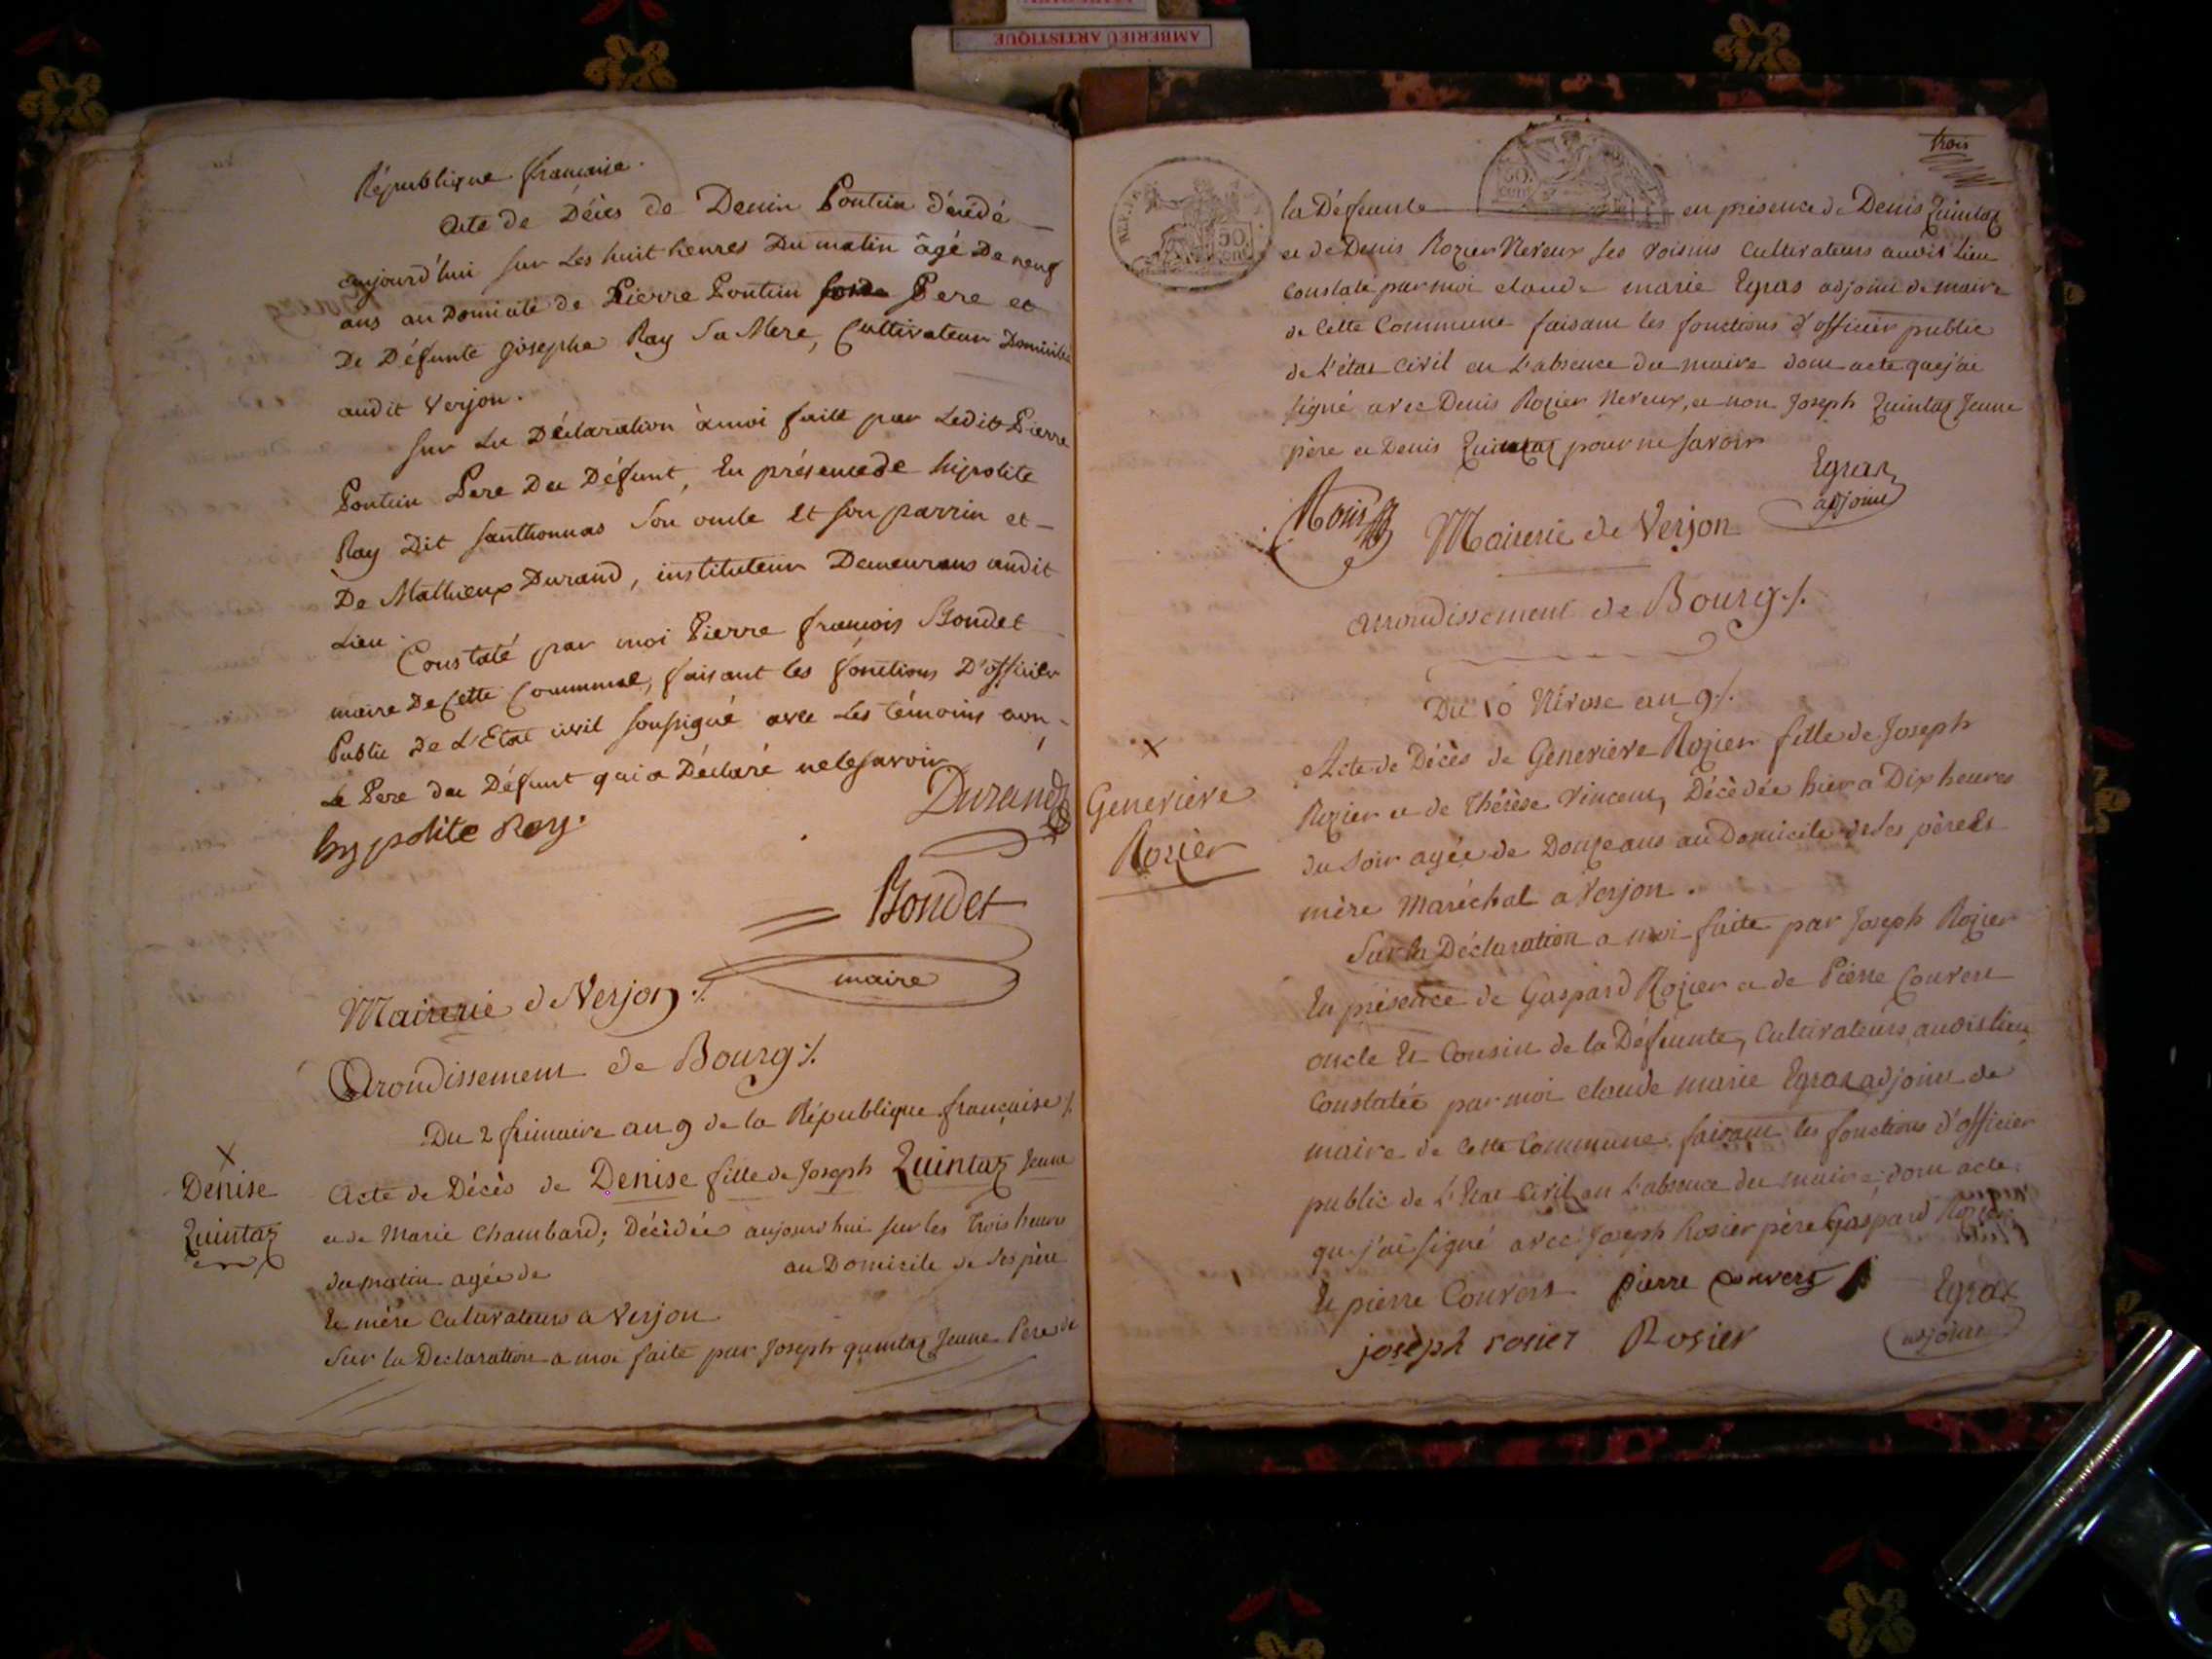 AMBERIEU ARTISTIQUE
République française.
Acte de Décès de Denin Pontin décédé
aujourd'hui sur les huit heures Du matin âgé De neuf
ans au Domicile de Pierre Pontin Pere et
De Défunte Josephe Ray Sa Mere, Cultivateur Domicilié
audit Verjon.
sur La Déclaration à moi faite par Ledit Pierre
Pontin Pere Du Défunt, En présence de hipolite
Ray Dit Santhonnas Son oncle Et son parrin et
De Mathieux Durand, instituteur Demeurans audit
Lieu.
Constaté par moi Pierre francois Bondet
maire De Cette Commune, faisant les fonctions D'officier
Public De L'Etat civil soussigné avec Les témoins non
Le Pere du Défunt qui a Déclaré ne le savoir
Durand
hyppolite Ray.
Bondet
maire
Mairerie de Verjon ./.
Arondissement de Bourg ./.
Du 2 frimaire an 9 de la République française ./.
Denise
Quintaz
Acte de Décès de Denise fille de Joseph Quintaz Jeune
et de Marie Chambard; Décédée aujourd'hui sur les trois heures
du matin agée de au Domicile de Ses père
Et mère Cultivateurs a Verjon
Sur la Declaration a moi faite par Joseph quintaz Jeune Pere de
trois
REP. FRA
50. CENT.
50. CENT.
la Défunte en présence de Denis Quintaz
et de Denis Rozier Neveux ses voisins Cultivateurs audit Lieu
Constaté par moi claude marie Egraz adjoint de maire
de Cette Commune faisant les fonctions d'officier public
de L'état Civil en L'absence du maire dont acte que j'ai
signé avec Denis Rozier Neveux, et non Joseph Quintaz Jeune
père et Denis Quintaz pour ne savoir
Egraz
adjoint
Mairerie de Verjon
arrondissement de Bourg ./.
Du 10 Nivose an 9 ./.
Genevieve
Rozier
Acte de Décès de Genevieve Rozier fille de Joseph
Rozier et de Thérèse Vincent, Décédée hier a Dix heures
du Soir agée de Douze ans au Domicile de Ses père Et
mère Maréchal a Verjon.
Sur la Déclaration a moi faite par Joseph Rozier
En présence de Gaspard Rozier et de Pierre Convert
oncle Et Cousin de la Défunte, Cultivateurs audit lieu
Constatée par moi claude marie Egraz adjoint de
maire de Cette Commune faisant les fonctions d'officier
public de L'Etat Civil en L'absence du maire, dont acte
que j'ai signé avec Joseph Rosier père Gaspard Rozier
Et pierre Convert pierre convert
Egraz
adjoint
joseph rosier Rosier